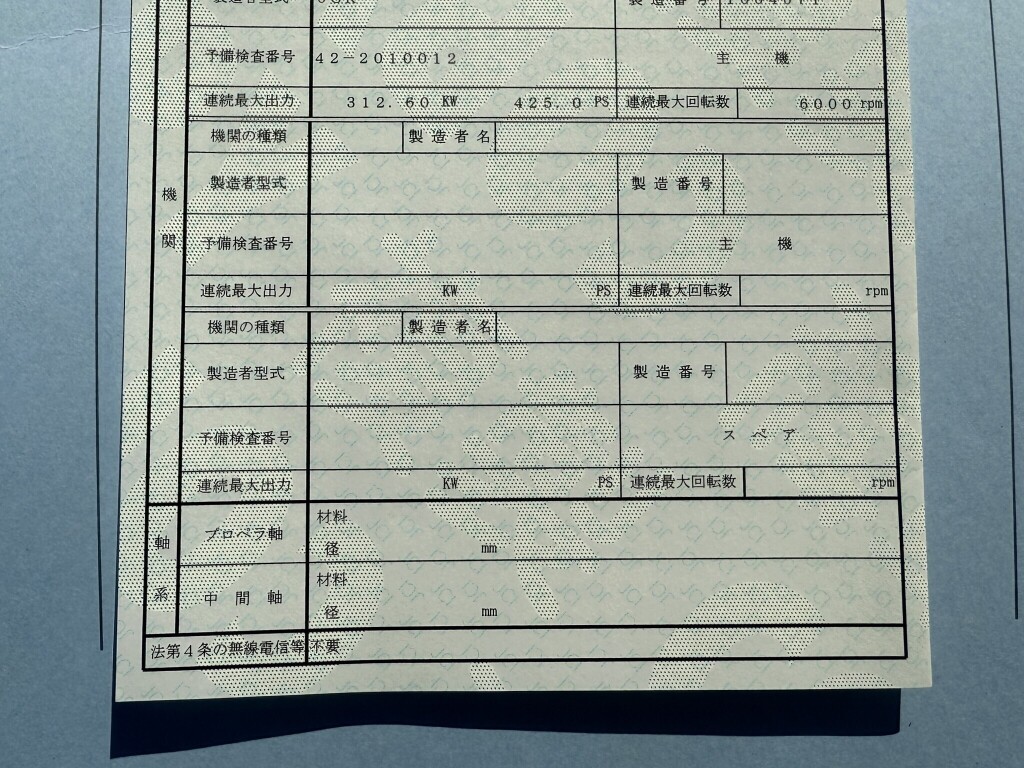 製造者型式 製造番号
予備検査番号 42-2010012 主 機
連続最大出力 312.60 KW 425.0 PS 連続最大回転数 6000 rpm
機関の種類 製造者名
製造者型式 製造番号
機関
予備検査番号 主 機
連続最大出力 KW PS 連続最大回転数 rpm
機関の種類 製造者名
製造者型式 製造番号
予備検査番号 スペア
連続最大出力 KW PS 連続最大回転数 rpm
軸系
プロペラ軸 材料
径 mm
中間軸 材料
径 mm
法第4条の無線電信等 不要